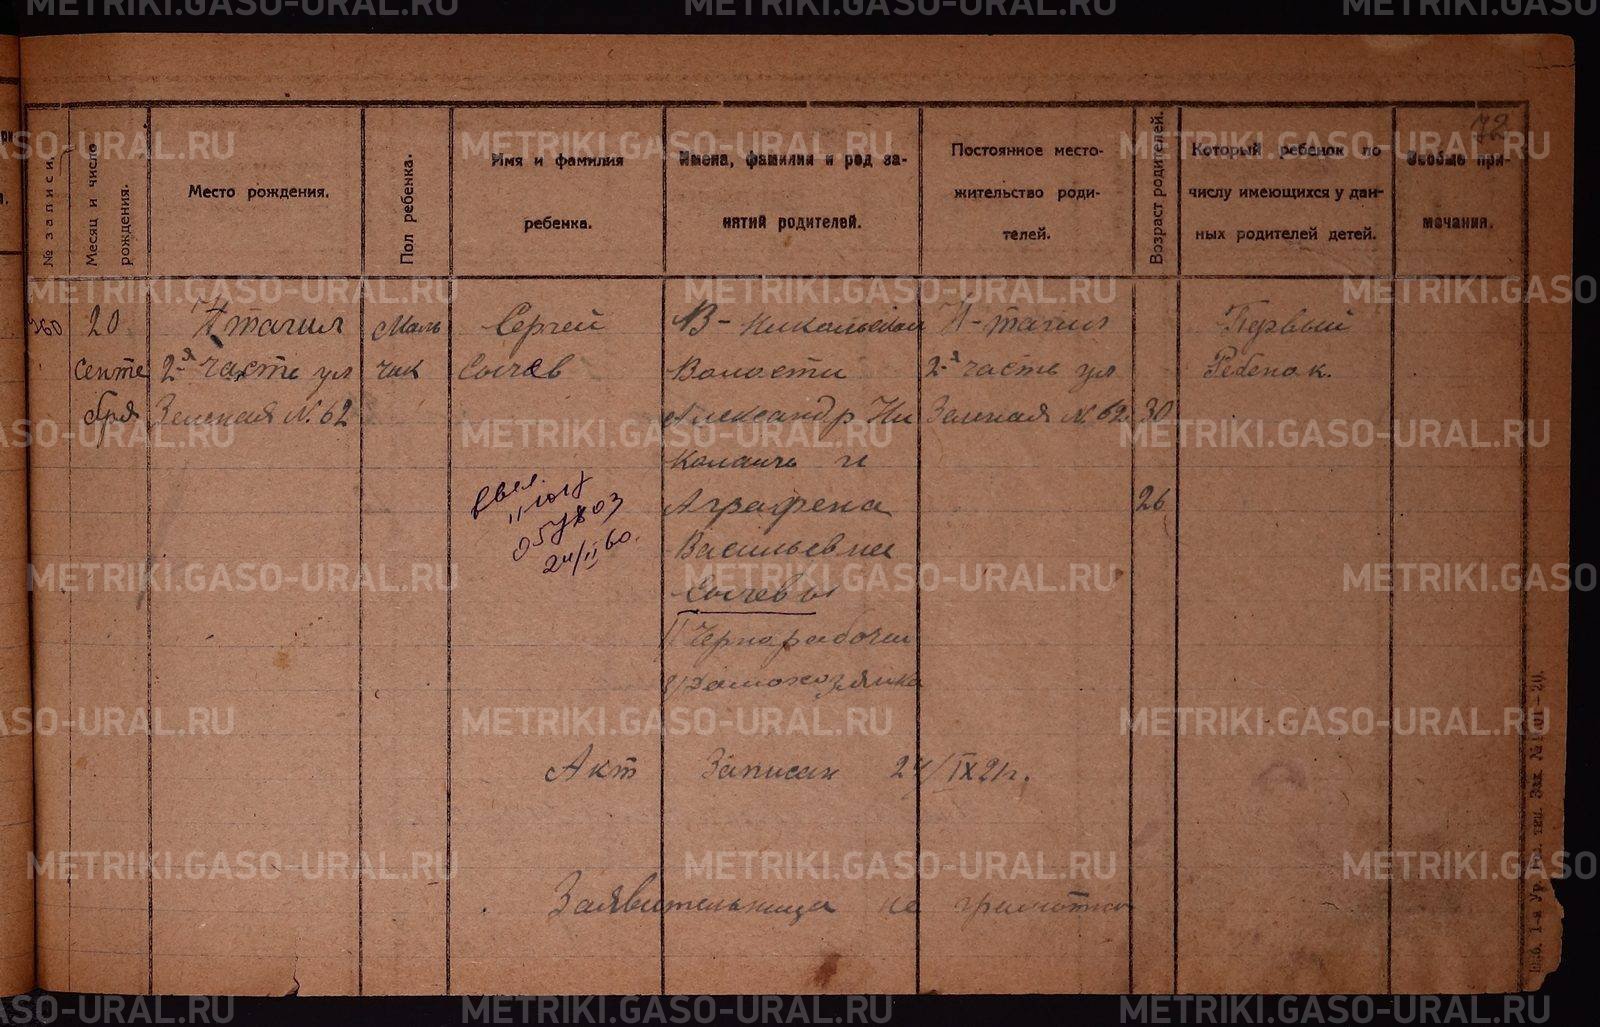 72
№ записи.
Месяц и число
рождения.
Место рождения.
Пол ребенка.
Имя и фамилия
ребенка.
Имена, фамилии и род за-
нятий родителей.
Постоянное место-
жительство роди-
телей.
Возраст родителей.
Который ребенок по
числу имеющихся у дан-
ных родителей детей.
Особые при-
мечания.
20
Сентя
бря
Н тагил
2-я часть ул
Зеленая №. 62
Маль
чик
Сергей
Сычев
В-Никольской
Волости
Александр Ни
колаичь и
Аграфена
Васильевна
Сычевы
Чернорабочий
Домохозяйка
Н-тагил
2-я часть ул
Зеленая №. 62
30
26
Первый
Ребенок.
24/II 60.
Акт Записан 24/IX 21 г.
Заявительница не грамотна
METRIKI.GASO-URAL.RU